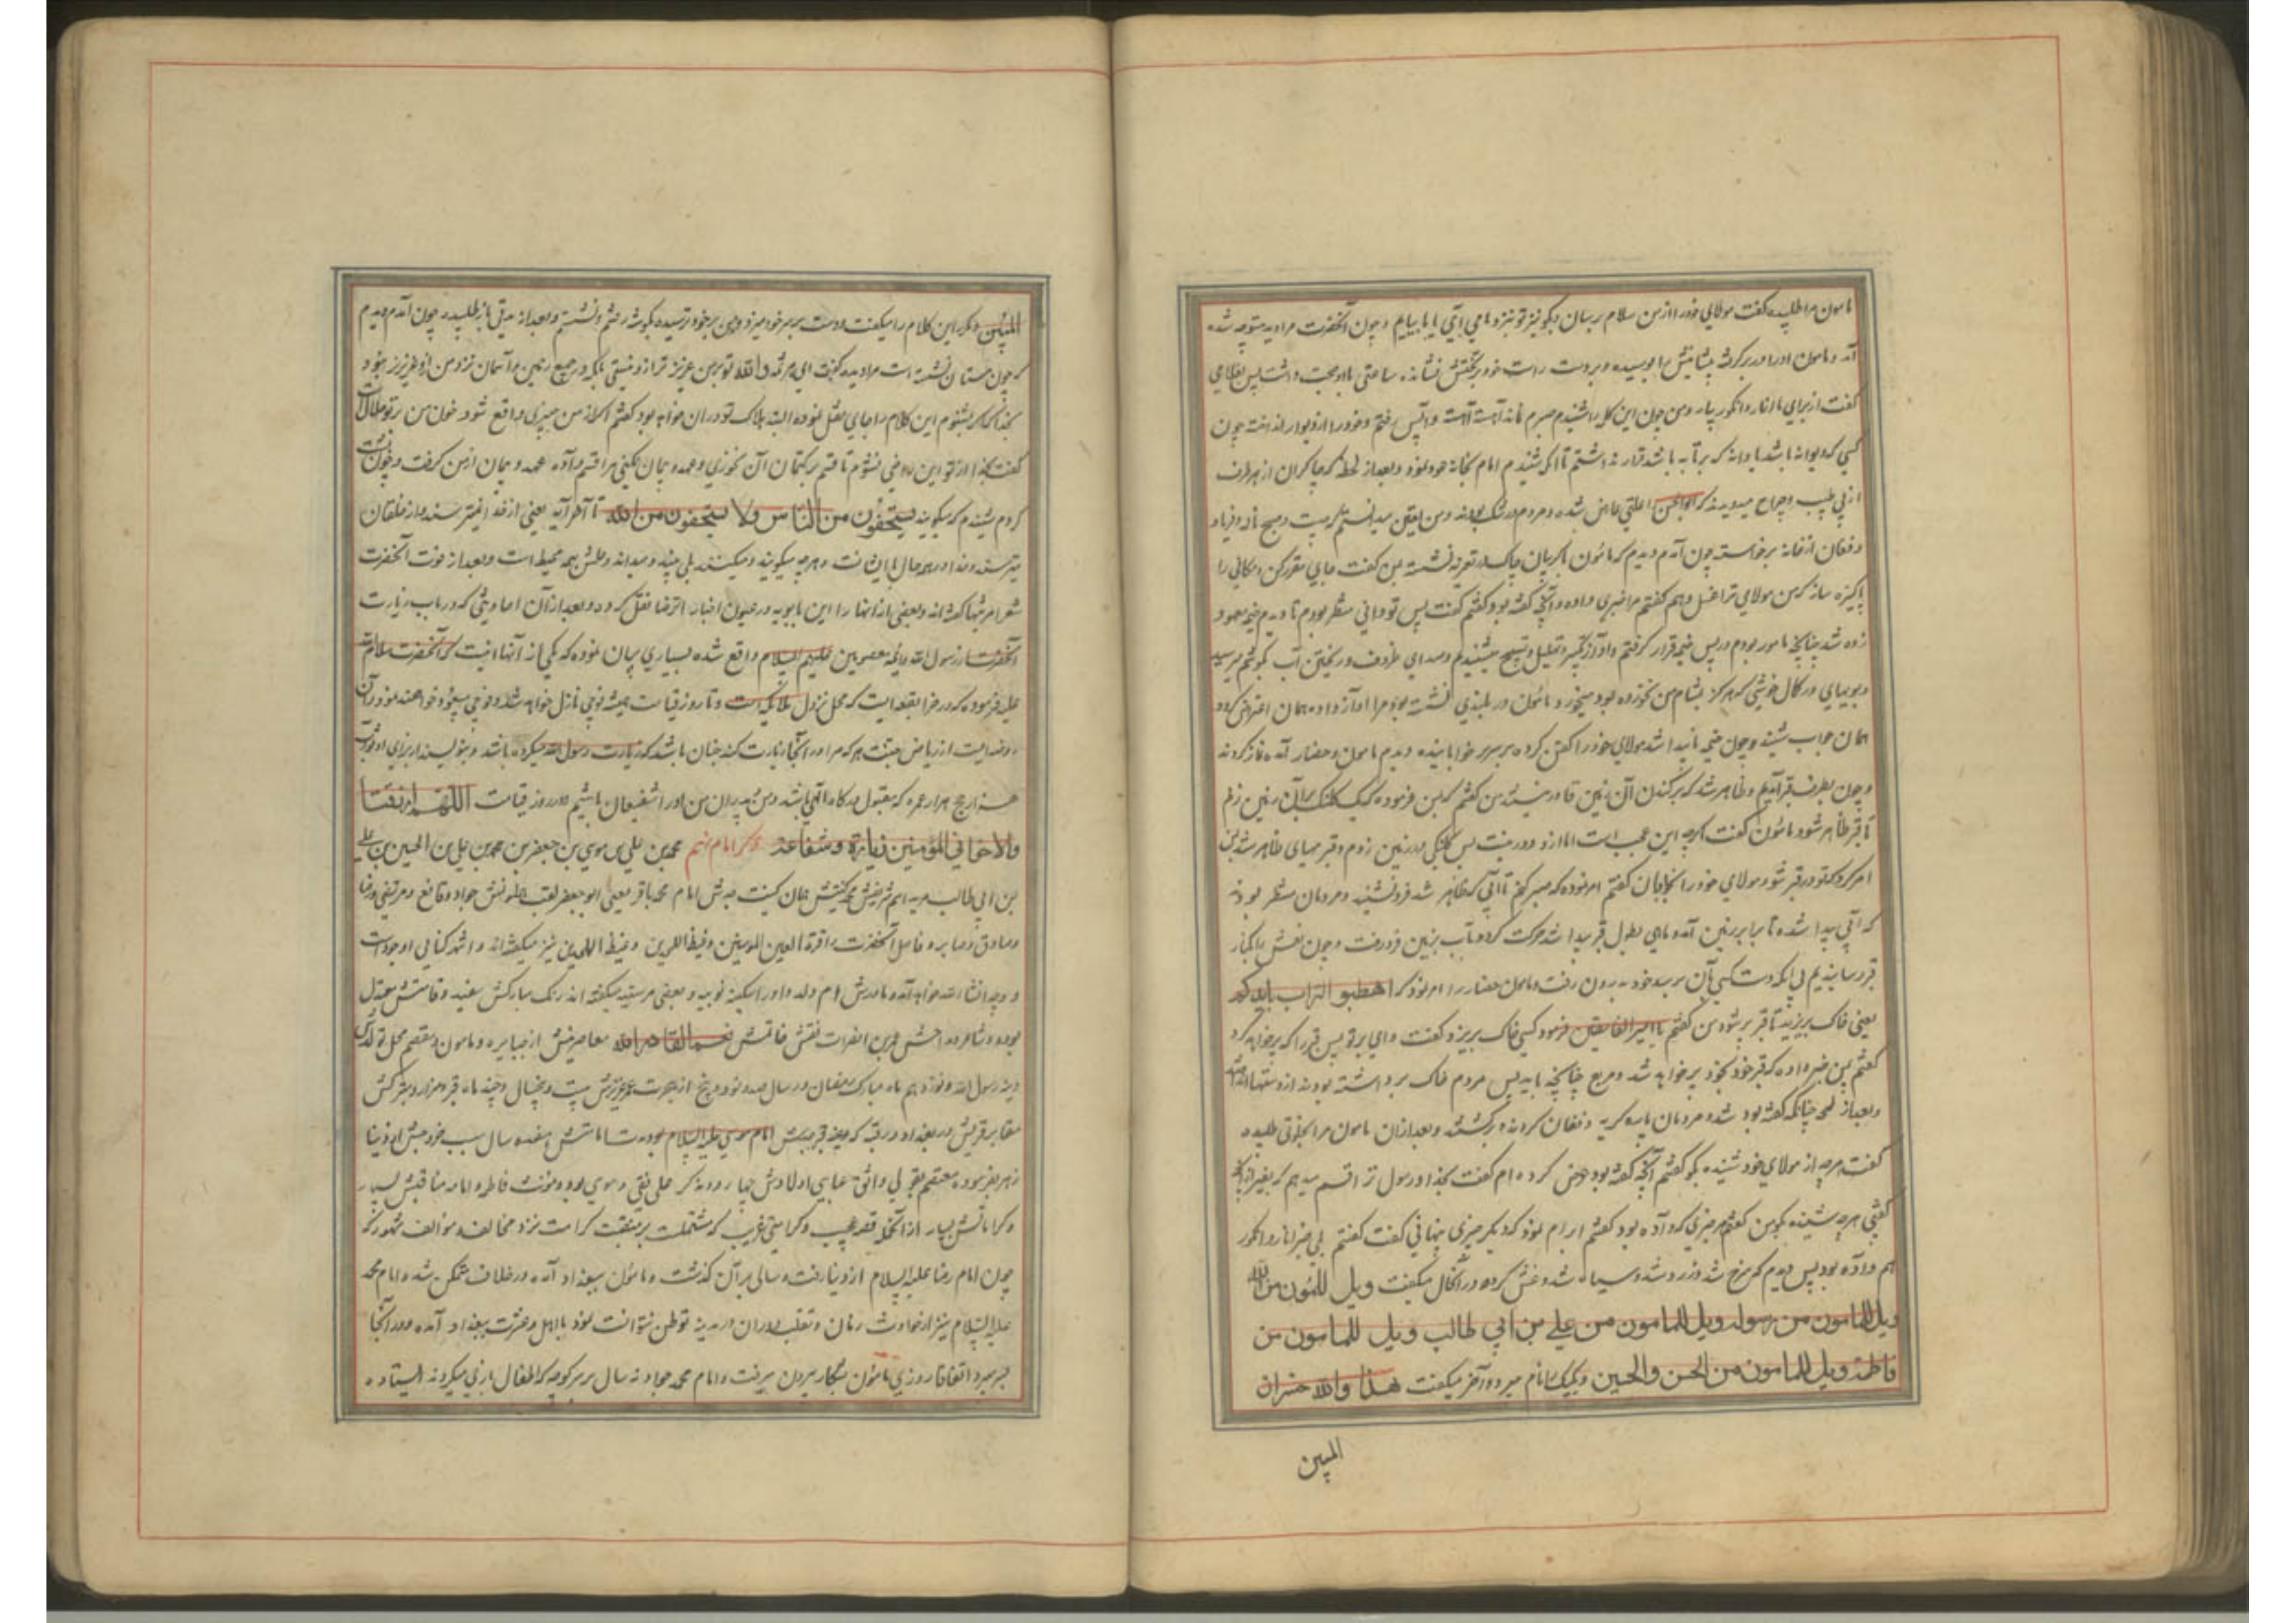 مامون مرا طلبیده گفت مولای خود را از من سلام برسان و بگو نیز تو نیز و ما می آیی یا ما بیایم و چون آنحضرت مرا دید متوجه شده
آمد و مامون او را در بر گرفته پیشانیش را بوسیده و بر دست راست خود بر تختش نشانده ساعتی با او صحبت داشت پس بغلامی
گفت از برای ما انار و انگور بیار و من چون این کلمه را شنیدم صبرم نماند آهسته آهسته واپس رفتم و خود را از دیوار انداخته چون
کسی که دیوانه باشد یا دانه که بر تابه باشد قرار نداشتم تا آنکه شنیدم امام بخانه خود و بعد از لحظه که چاکران از هر طرف
از پی طبیب و جراح میدویدند که ابوالحسن را علتی عارض شده و مردم در شک بودند و من یقین میدانستم که چیست و صبح ناله و فریاد
و فغان از خانه برخاست چون آمدم دیدم که مامون گریبان چاک در تعزیه نشسته بمن گفت جایی مقرر کن و مکانی را
پاکیزه ساز که من مولای ترا غسل دهم گفتم مرا خبری داده و آنچه گفته بود گفتم گفت پس تو دانی منتظر بودم تا دیدم خیمه معهود
زده شد چنانچه مامور بودم در پس خیمه قرار گرفتم و آواز تکبیر و تهلیل و تسبیح میشنیدم و صدای ظروف و ریختن آب بگوشم میرسید
و بویهای در کمال خوشی که هرگز بمشام من نخورده بود میخورد و مامون در بلندی نشسته بود مرا آواز داده همان اعتراض کرد و
همان جواب شنید و چون خیمه ناپیدا شد مولای خود را کفن کرده بر سریر خوابانیده دیدم مامون و حضار آمده نماز کردند
و چون بطرف قبر آمدیم و ظاهر شد که بر کندن آن زمین قادر نیستند من گفتم که بمن فرموده که یک کلنگ بر آن زمین زنم
تا قبر ظاهر شود مامون گفت اگرچه این عجب است اما از او دور نیست پس کلنگی در زمین زدم و قبر مهیای ظاهر شد بمن
امر کرد که تو در قبر شو و مولای خود را بخوابان گفتم امر نموده که صبر کنم تا آبی که ظاهر شد فرو نشیند و مردمان منتظر بودند
که آبی پیدا شده تا برابر زمین آمد و ماهی بطول قبر پیدا شد حرکت کرد و تا آب بزمین فرو رفت و چون نعش را بکنار
قبر رسانیدیم بی آنکه دست کسی بآن برسد خود بدرون رفت و مامون حضار را امر نمود که اهطبوا التراب بایدیکم
یعنی خاک بریزید تا قبر پر شود من گفتم یا امیر الفاسقین فرمود کسی خاک بریزد گفت وای بر تو پس قبر را که پر خواهد کرد
گفتم بمن خبر داده که قبر خود بخود پر خواهد شد و مربع چنانچه باید پس مردم خاک برداشته بودند از دستها انداختند
و بعد از لمحه چنانکه گفته بود شد و مردمان باره گریه و فغان کردند و برگشتند و بعد از آن مامون مرا بخلوتی طلبیده
گفت هرچه از مولای خود شنیده بگو گفتم آنچه گفته بود عرض کرده ام گفت بخدا و رسول ترا قسم میدهم که بغیر از آنچه
گفتی هرچه شنیده بگو من گفتم هر چیزی که داده بود گفتم ابرام نمود که دیگر چیزی پنهانی گفت گفتم بلی خبر انار و انگور
هم داده بود پس دیدم که سرخ شد و زرد شد و سیاه شد و غش کرده در آنحال میگفت ویل للمأمون من الله
ویل للمامون من رسوله ویل للمامون من علی بن ابی طالب ویل للمامون من
فاطمة ویل للمامون من الحسن والحسین و یک یک امام میبرد و آخر میگفت هذا والله خسران
المبین
المبین و مکرر این کلام را میگفت و دست بر سر خود میزد و من بر خود ترسیده بگوشه رفتم و نشستم و بعد از مدتی باز طلبید و چون آمدم دیدم
که چون مستان نشسته است مرا دیده گفت ای هرثمه والله تو بر من عزیزتر از او نیستی بلکه در جمیع زمین و آسمان نزد من از او عزیزتر نبود و
بخدا که اگر بشنوم این کلام را جایی نقل نموده البته هلاک تو در آن خواهد بود گفتم اگر از من چیزی واقع شود خون من بر تو حلال است
گفت بخدا از تو این راضی نشوم تا قسم بر کتمان آن نخوری و عهد و پیمان نکنی مرا قسم داده عهد و پیمان از من گرفت و چون پشت
کردم شنیدم که میگوید یستخفون من الناس ولا یستخفون من الله تا آخر آیه یعنی از خدا نمیترسند و از خلقان
میترسند و خدا در همه حال با ایشانست و هرچه میگویند و میکنند بلی میبیند و میداند و علمش بهمه محیط است و بعد از فوت آنحضرت
شعرا مرثیها گفته اند و بعضی از آنها را ابن بابویه در عیون اخبار الرضا نقل کرده و بعد از آن احادیثی که در باب زیارت
آنحضرت از رسول الله و ائمه معصومین علیهم السلام واقع شده بسیاری بیان نموده که یکی از آنها اینست که آنحضرت سلام الله
علیه فرموده که در خراسان بقعه ایست که محل نزول ملائکه است و تا روز قیامت همیشه فوجی نازل خواهد شد و فوجی صعود خواهند نمود و آن
روضه ایست از ریاض جنت هر که مرا در آنجا زیارت کند چنان باشد که زیارت رسول الله میکرده باشد و بنویسند از برای او ثواب
هزار حج و هزار عمره که مقبول درگاه الهی باشد و من و پدران من او را شفیعان باشیم در روز قیامت اللهم ارزقنا
ولاخوانی المؤمنین زیارته وشفاعته ذکر امام نهم محمد بن علی بن موسی بن جعفر بن محمد بن علی بن الحسین بن علی
بن ابی طالب علیه اسم شریفش محمد کنیتش همان کنیت جدش امام محمد باقر یعنی ابو جعفر لقب همایونش جواد و قانع و مرتضی و رضا
و صادق و صابر و فاضل آنحضرت را قرة العین المومنین و غیظ الملحدین نیز میگفته اند و اشهر کنایی او جواد است
و وجه انشاء الله خواهد آمد و مادرش ام ولد و او را سکینه نوبیه و بعضی مریسیه میگفته اند رنگ مبارکش سفید و قامتش معتدل
بوده و شاعر و مداحش عمر بن الفرات نقش خاتمش نعم القادر الله معاصرینش از جبابره و مامون و معتصم محل تولدش
مدینه رسول الله و نوزدهم ماه مبارک رمضان در سال صد و نود و پنج از هجرت عمر عزیزش بیست و پنجسال و چند ماه قبر و مزار متبرکش
مقابر قریش در بغداد در قبه که روضه قبر جدش امام موسی علیه السلام بوده مدت امامتش هفده سال سبب خروجش از دنیا
زهر بفرموده معتصم بقولی واثق عباسی اولادش چهار دو مذکر علی نقی و موسی بود و مؤنث فاطمه و امامه مناقبش بسیار
و کراماتش بیشمار از آنجمله قصه عجیب و کرامتی غریب که مشتملست بر منقبت کرامت نزد مخالف و موالف مشهور که
چون امام رضا علیه السلام از دنیا رفت و سالی بر آن گذشت و مامون ببغداد آمده در خلافت متمکن شده امام محمد
علیه السلام نیز از حوادث زمان و تقلب دوران در مدینه توطن نتوانست نمود با اهل و عترت ببغداد آمده و در آنجا
بسر میبرد اتفاقا روزی مامون بشکار بیرون میرفت و امام محمد جواد نه سال بر سر کوچه که اطفال بازی میکردند ایستاده